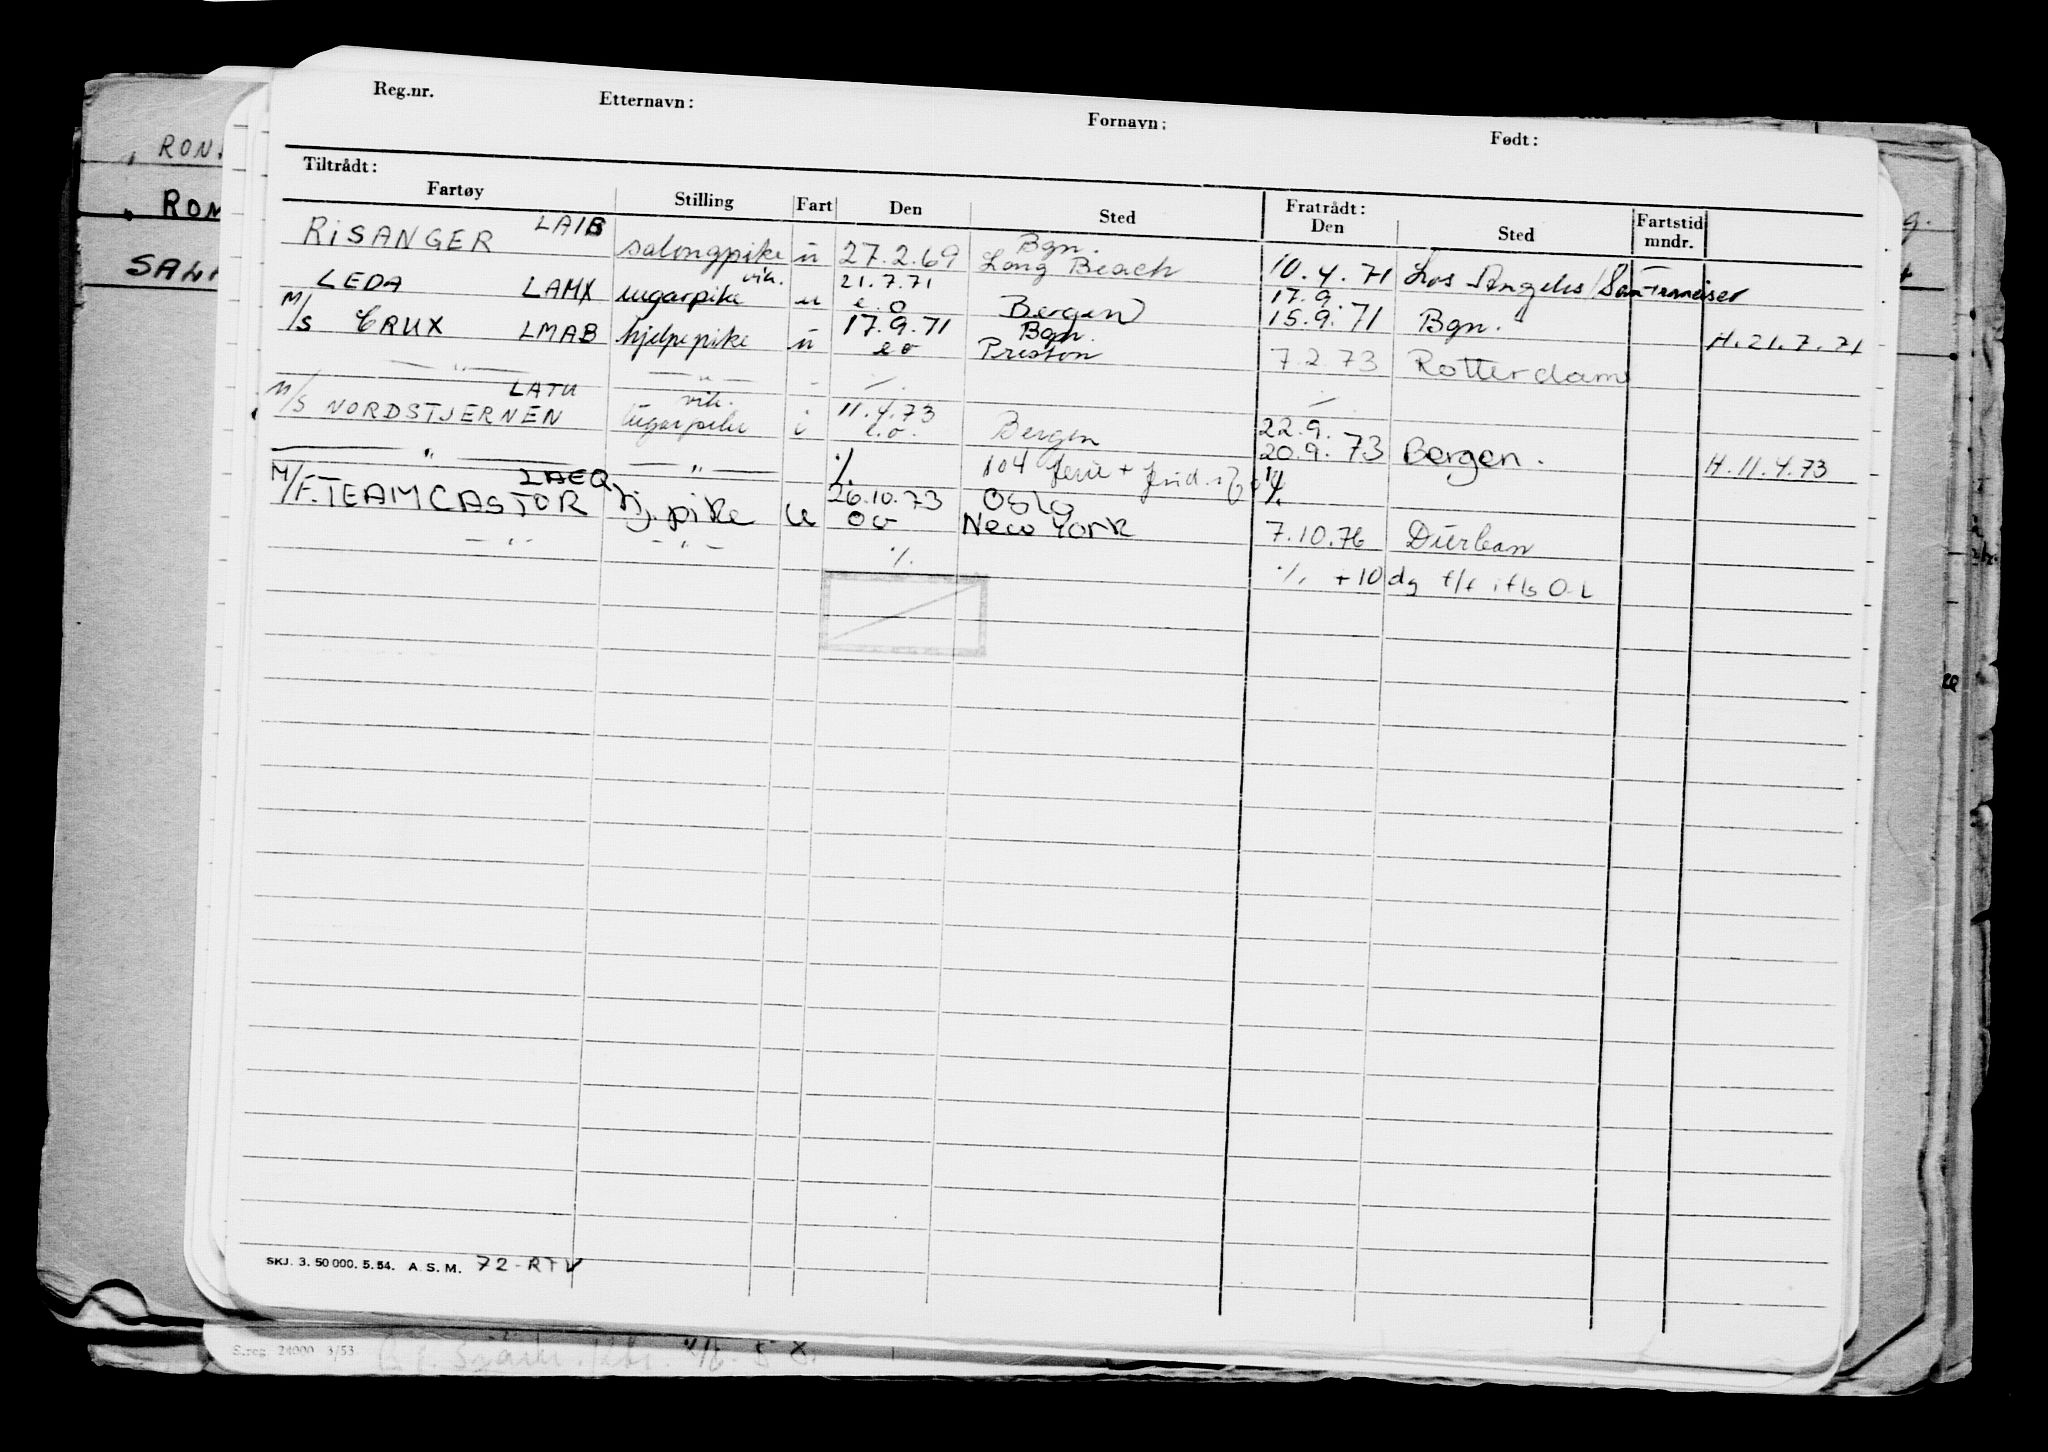 Reg.nr. Etternavn: Fornavn: Født:
Tiltrådt: Fratrådt:
Fartøy Stilling Fart Den Sted Den Sted Fartstid mndr.
RISANGER LAIB salongpike u 27.2.69 Bgn. Long Beach 10.4.71 Los Angeles / San Francisco
LEDA LAMX vik. lugarpike u 21.7.71 e.o Bergen 17.9. 15.9.71 Bgn. H. 21.7.71
M/S CRUX LMAB hjelpepike u 17.9.71 e o Bgn. Preston 7.2.73 Rotterdam
— " — — " — - ./. ./.
M/S NORDSTJERNEN LATU vik. lugarpike i 11.4.73 e.o. Bergen 22.9. 20.9.73 Bergen. H. 11.4.73
— " — — " — ./. 104 ferie + frid. ./.
M/F. TEAM CASTOR LAEQ hj. pike u 26.10.73 oo Oslo New York 7.10.76 Durban
— " — — " — ./. ./. + 10 dg f/f i fls O-L
SKJ. 3. 50 000. 5.54. A. S. M. 72-RTV
S.reg 24000 3/53
RON
ROM
SAL